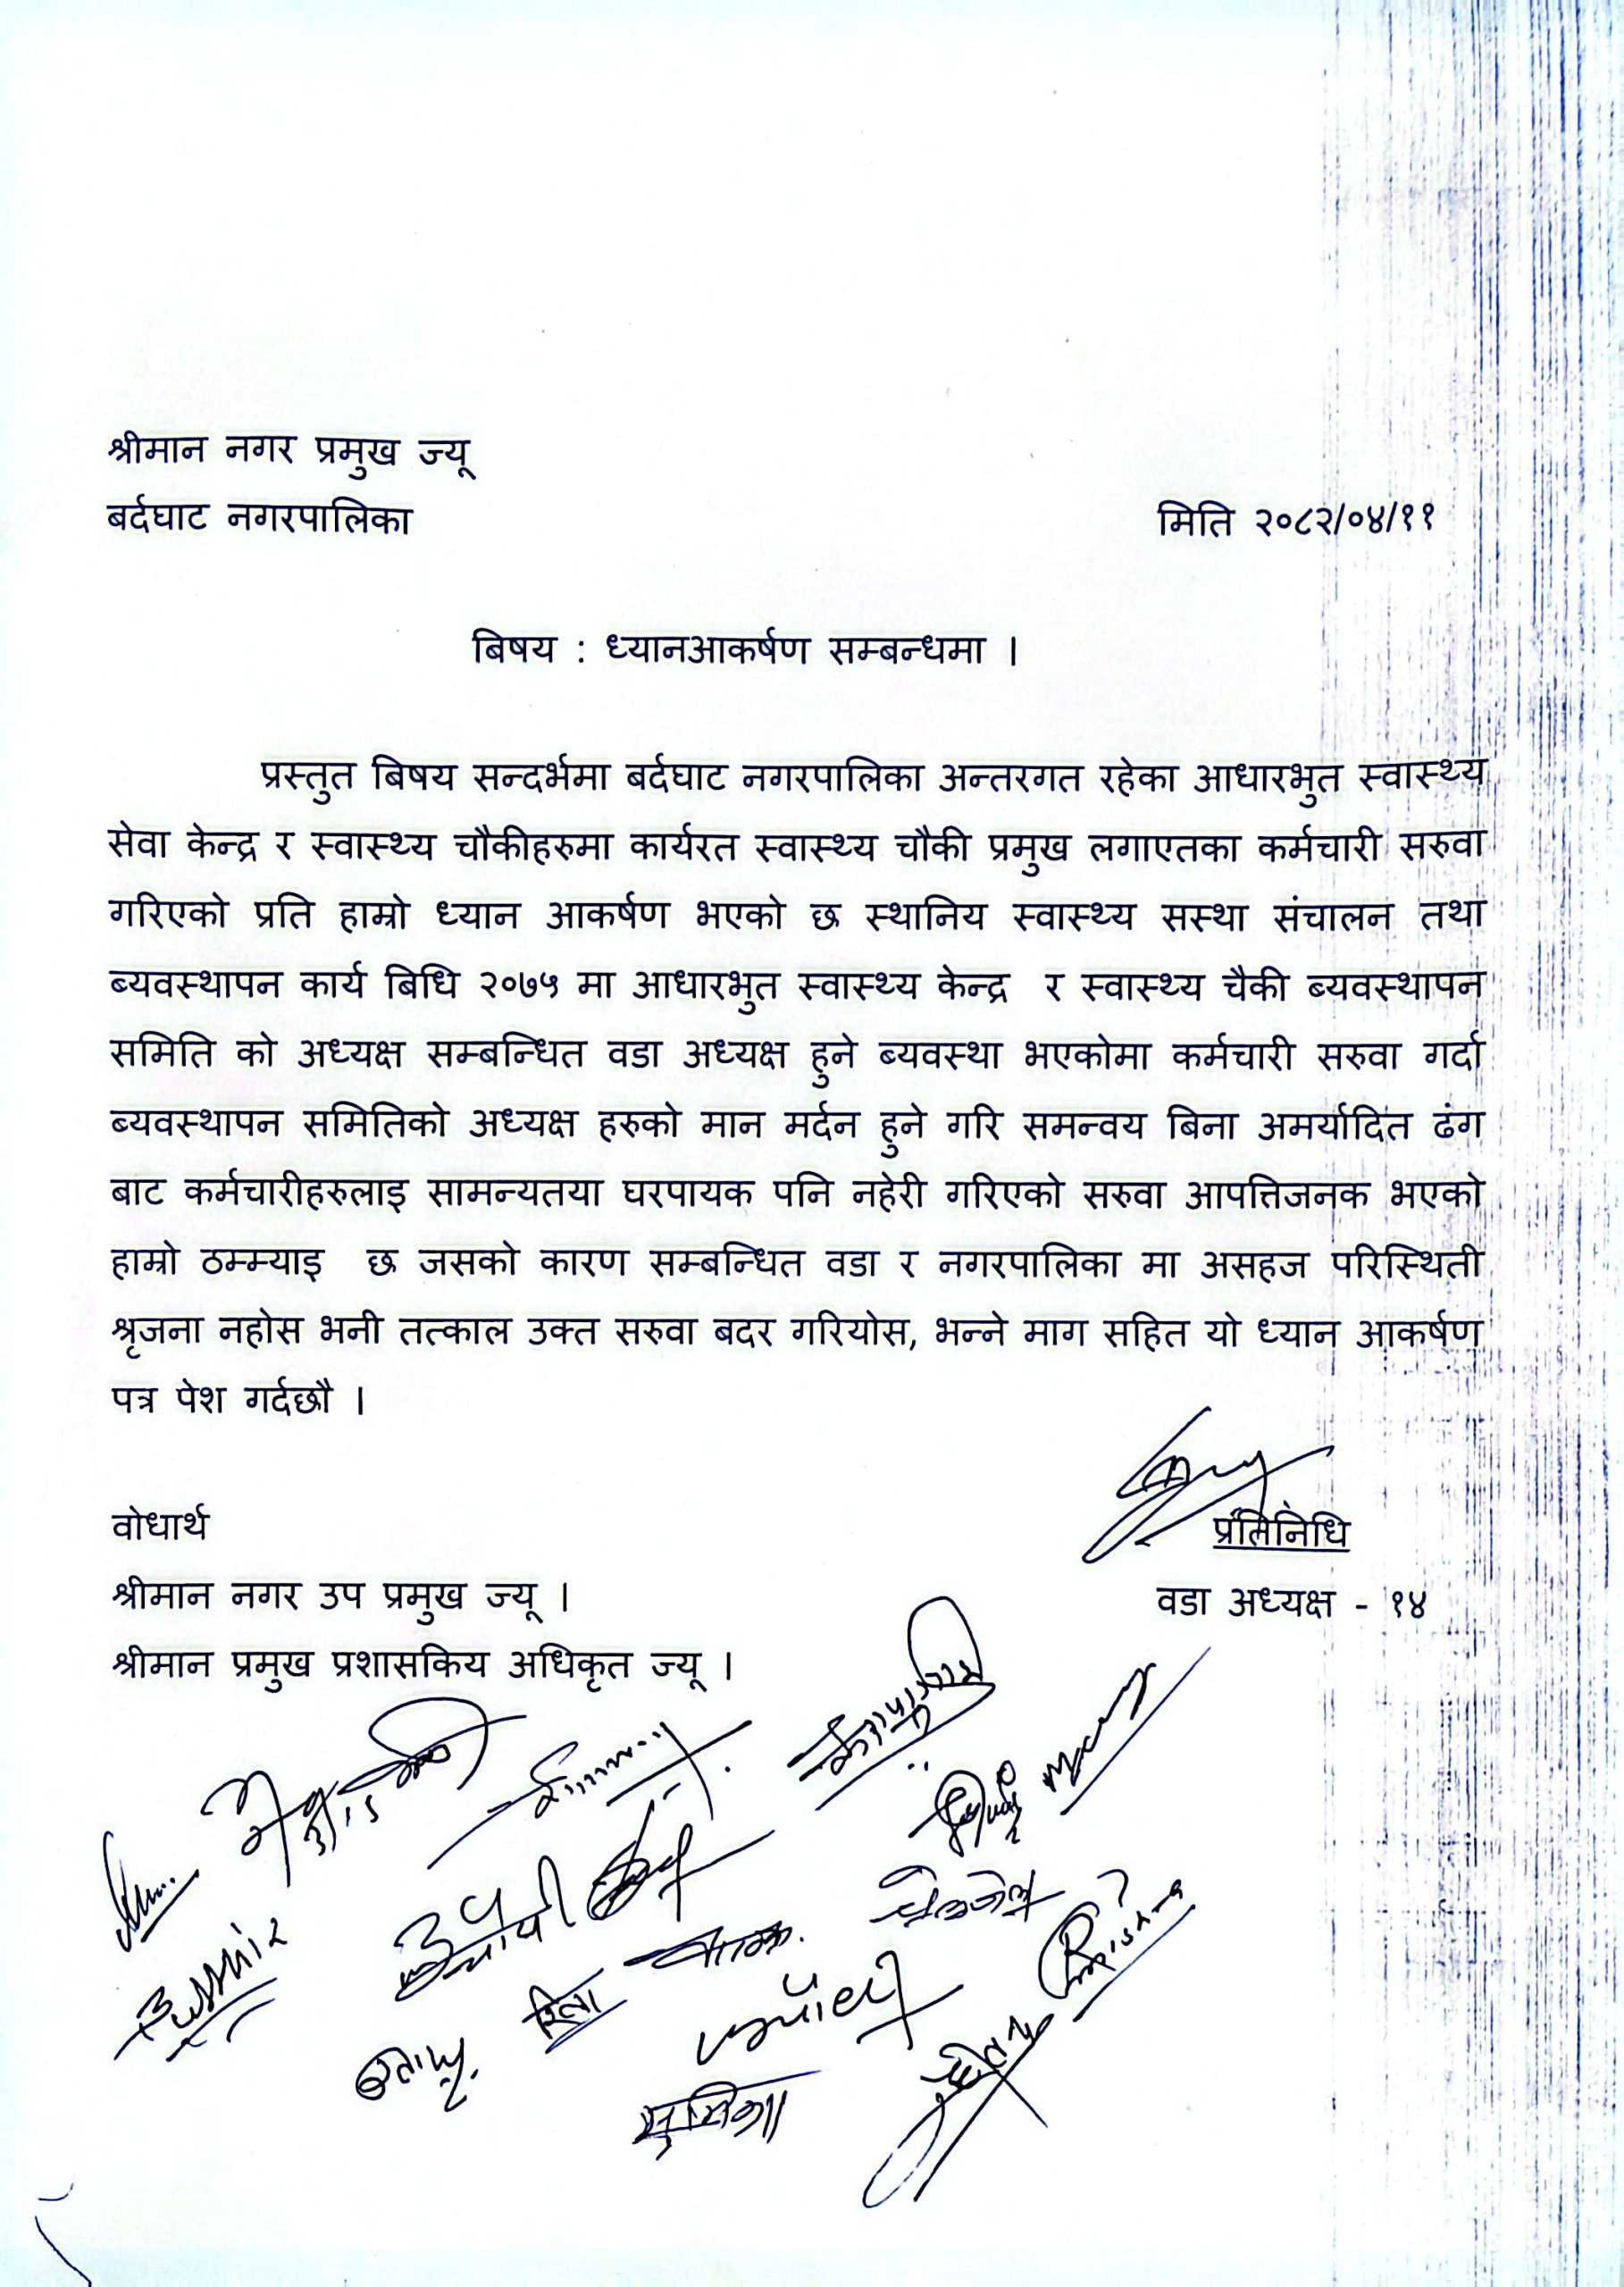 श्रीमान नगर प्रमुख ज्यू
बर्दघाट नगरपालिका
मिति २०८२/०४/११
बिषय : ध्यानआकर्षण सम्बन्धमा ।
प्रस्तुत बिषय सन्दर्भमा बर्दघाट नगरपालिका अन्तरगत रहेका आधारभुत स्वास्थ्य
सेवा केन्द्र र स्वास्थ्य चौकीहरुमा कार्यरत स्वास्थ्य चौकी प्रमुख लगाएतका कर्मचारी सरुवा
गरिएको प्रति हाम्रो ध्यान आकर्षण भएको छ स्थानिय स्वास्थ्य सस्था संचालन तथा
ब्यवस्थापन कार्य बिधि २०७५ मा आधारभुत स्वास्थ्य केन्द्र र स्वास्थ्य चैकी ब्यवस्थापन
समिति को अध्यक्ष सम्बन्धित वडा अध्यक्ष हुने ब्यवस्था भएकोमा कर्मचारी सरुवा गर्दा
ब्यवस्थापन समितिको अध्यक्ष हरुको मान मर्दन हुने गरि समन्वय बिना अमर्यादित ढंग
बाट कर्मचारीहरुलाइ सामन्यतया घरपायक पनि नहेरी गरिएको सरुवा आपत्तिजनक भएको
हाम्रो ठम्म्याइ छ जसको कारण सम्बन्धित वडा र नगरपालिका मा असहज परिस्थिती
श्रृजना नहोस भनी तत्काल उक्त सरुवा बदर गरियोस, भन्ने माग सहित यो ध्यान आकर्षण
पत्र पेश गर्दछौ ।
वोधार्थ
प्रतिनिधि
श्रीमान नगर उप प्रमुख ज्यू ।
वडा अध्यक्ष - १४
श्रीमान प्रमुख प्रशासकिय अधिकृत ज्यू ।